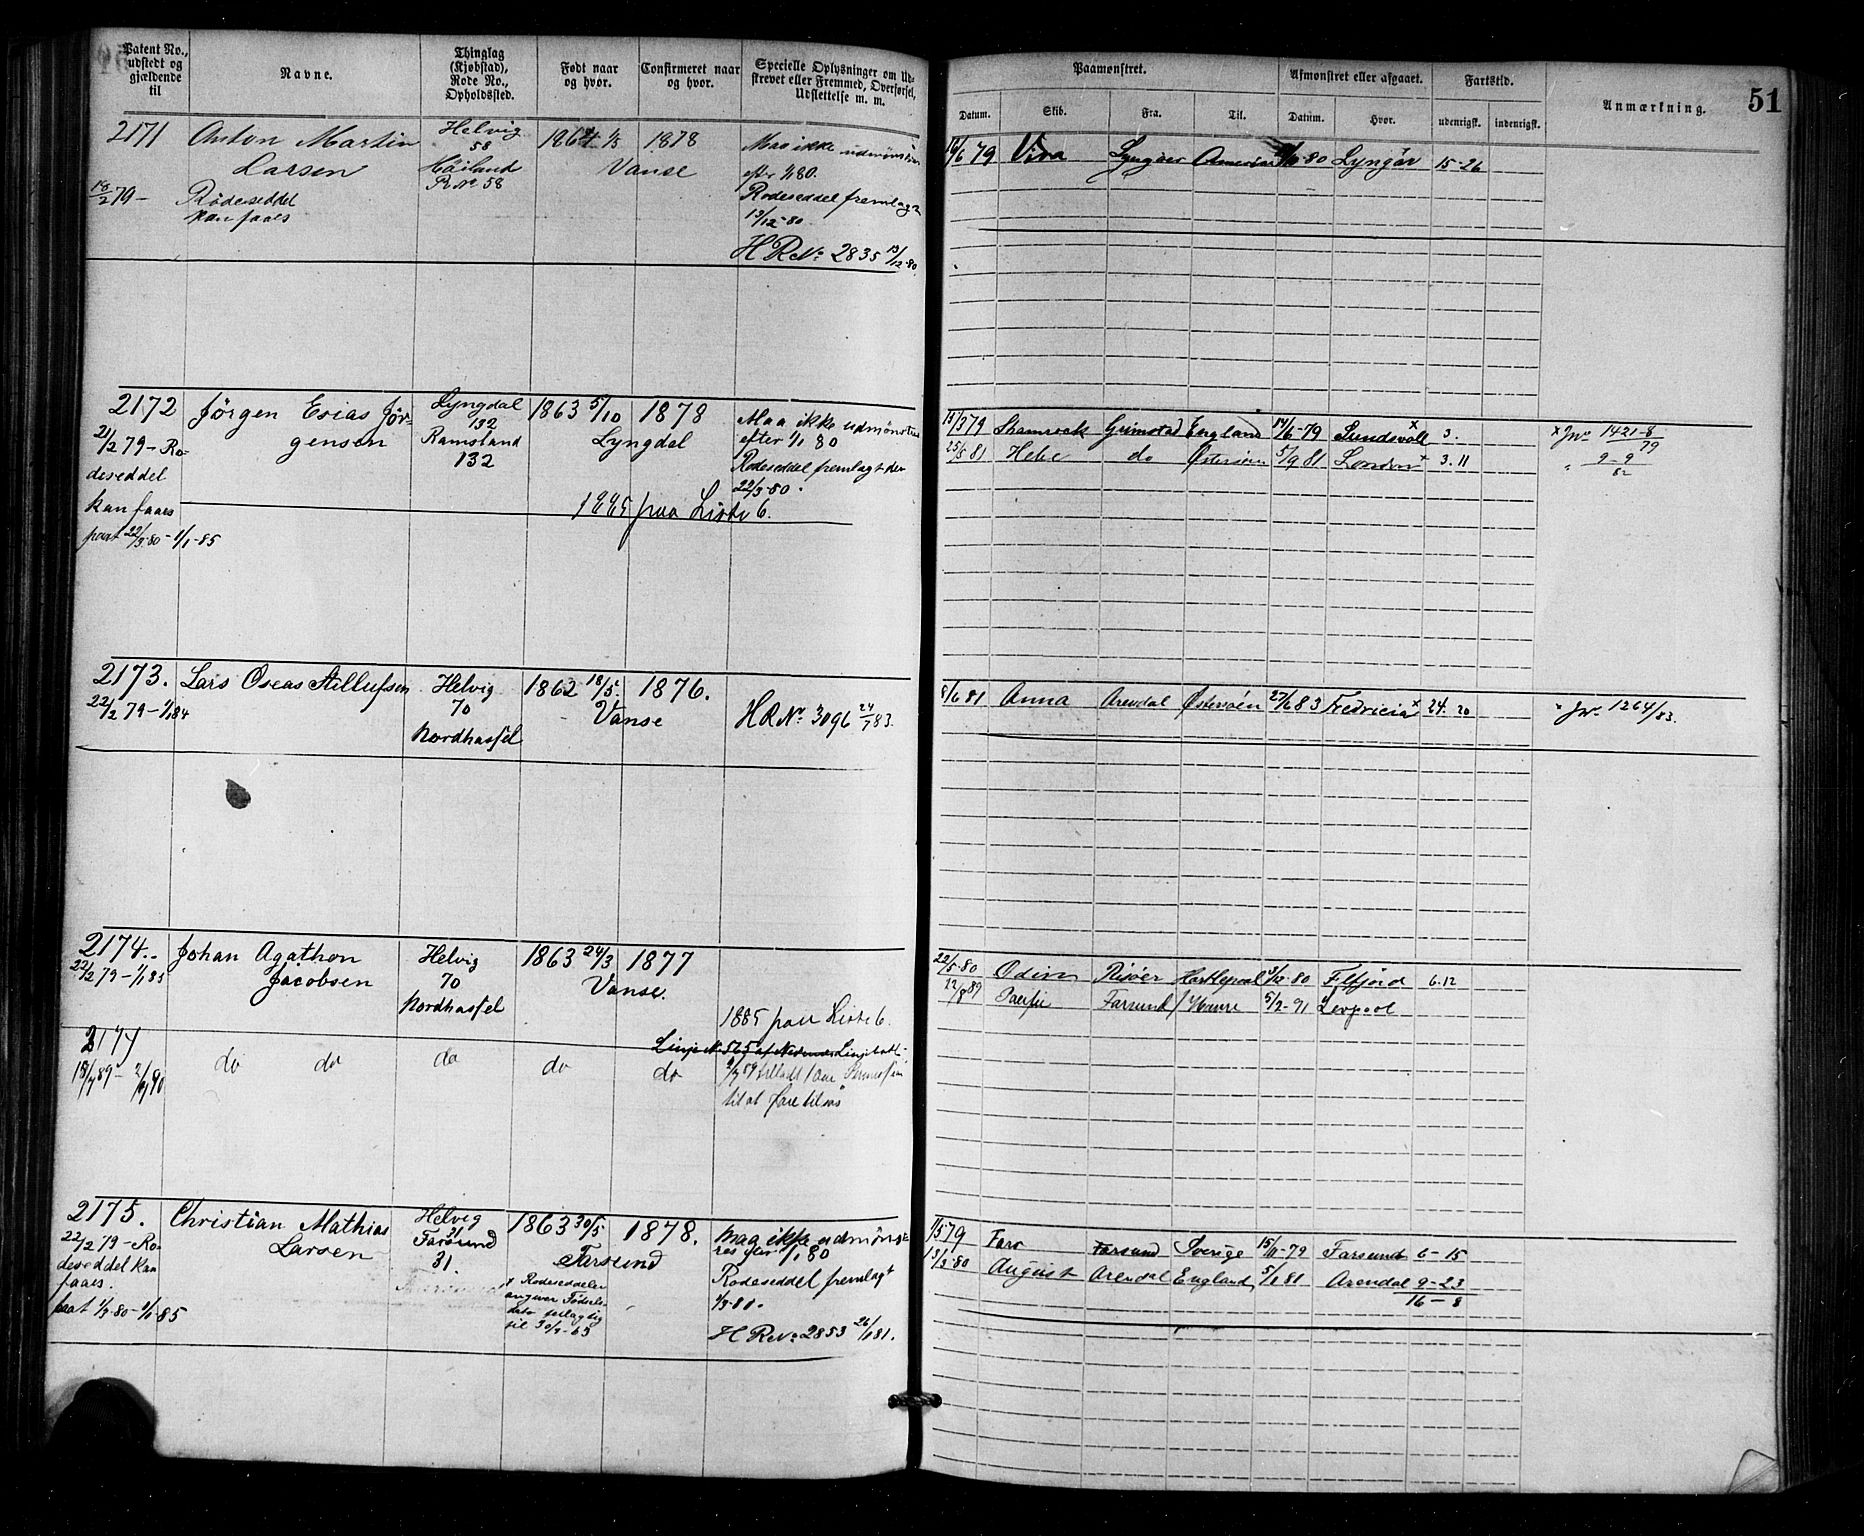 Patent No., udstedt og gjældende til
Navne.
Thinglag (Kjøbstad), Rode No., Opholdssted.
Født naar og hvor.
Confirmeret naar og hvor.
Specielle Oplysninger om Udskrevet eller Fremmed, Overførsel, Udslettelse m. m.
Paamønstret.
Afmønstret eller afgaaet.
Fartstid.
Anmærkning.
51
Datum.
Skib.
Fra.
Til.
Datum.
Hvor.
udenrigsk.
indenrigsk.
2171
Anton Martin
Larsen
18/2 79 -
Rodeseddel
kan faaes
Helvig
58
Høiland
R No 58
1864 1/5
1878
Vanse
Maa ikke udmønstres
efter 1/1 80.
Rodeseddel fremlagt
13/12-80.
H R No 2835 13/12-80.
Vira
Lyngøer
Lyngør
15-26
2172
Jørgen Esias Jør-
gensen
21/2 79 - Ro-
deseddel
kan faaes
paat 22/3-80 - 1/1-85
Lyngdal
132
Ramsland
132
1863 5/10
1878
Lyngdal
Maa ikke udmønstres
efter 1/1 80
Rodeseddel fremlagt den
22/3-80.
1885 paa Liste 6.
15/3 79
Shamrock
Grimstad
England
14/6-79
Sundsvall x
3.
x Jr. 1421-8/79
25/5 81
Hebe
do
Østersøen
5/9 81
London x
3.11
" 9-9/82
2173.
Lars Oseas Tillufsen
22/2 79 - 1/1 84
Helvig
70
Nordhassel
1862 18/5
1876.
Vanse
H R No 3096 24/7 83.
8/6 81
Anna
Arendal
Østersøen
27/6 83
Fredricia x
24. 20
x Jr. 1264/83.
2174.
Johan Agathon
Jacobsen
22/2 79 - 1/1 85
Helvig
70
Nordhassel
1863 24/3
1877
Vanse.
1885 paa Liste 6.
22/5-80
Odin
Risøer
Hartlepool
3/12-80
6.12
12/8 89
Farsund
5/2-91
do
do
do
do
do
2175.
Christian Mathias
Larsen
22/2 79 - Ro-
deseddel kan
faaes.
paat 1/3-80 - 1/1-85
Helvig
31
Farsund
31.
1863 30/5
1878.
Farsund
x Rodeseddelen
angiver Fødsels-
dato
til 30/9-63
Maa ikke udmønst-
res efter 1/1 80
Rodeseddel fremlagt
1/3-80.
H R No 2853 26/1 81.
1/5 79
Farsund
Sverige
15/11-79
Farsund
6-15
13/3-80
August
Arendal
England
5/1 81
Arendal
9-23
16-8